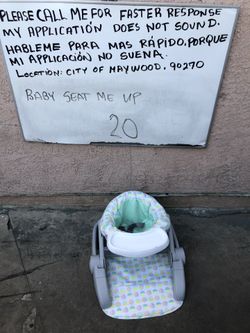 PLEASE CALL ME FOR FASTER RESPONSE
MY APPLICATIÓN DOES NOT SOUND.
HABLEME PARA MAS RÁPIDO, PORQUE
MI APPLICACIÓN NO SUENA.
LOCATION: CITY OF MAYWOOD, 90270
BABY SEAT ME UP
20